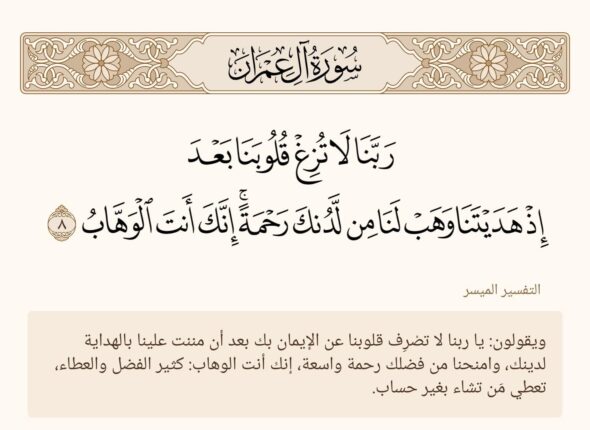 سُورَةُ آلِ عِمْرَان
رَبَّنَا لَا تُزِغْ قُلُوبَنَا بَعْدَ
إِذْ هَدَيْتَنَا وَهَبْ لَنَا مِن لَّدُنكَ رَحْمَةً ۚ إِنَّكَ أَنتَ الْوَهَّابُ ٨
التفسير الميسر
ويقولون: يا ربنا لا تضرِف قلوبنا عن الإيمان بك بعد أن مننت علينا بالهداية
لدينك، وامنحنا من فضلك رحمة واسعة، إنك أنت الوهاب: كثير الفضل والعطاء،
تعطي مَن تشاء بغير حساب.